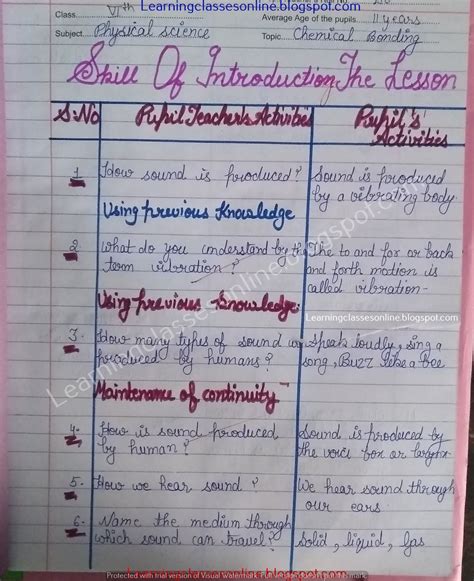 Learningclassesonline.blogspot.com
Class VIth
Average Age of the pupils 11 years
Subject Physical science
Topic Chemical Bonding
Skill Of Introduction The Lesson
S.No Pupil Teacher's Activities Pupil's Activities
1 How sound is produced? Sound is produced
by a vibrating body
Using previous Knowledge
2 What do you understand by th The to and for or back
term vibration? and forth motion is
called vibration-
Using previous Knowledge:
Learningclassesonline.blogspot.com
3. How many types of sound are Speak loudly, sing a
produced by humans? song, Buzz like a bee
Maintenance of continuity
4. How is sound produced Sound is produced by
by human? the voice box or larynx.
5. How we hear sound? We hear sound through
our ears.
6. Name the medium through
which sound can travel? Solid, liquid, gas
Learningclassesonline.blogspot.com